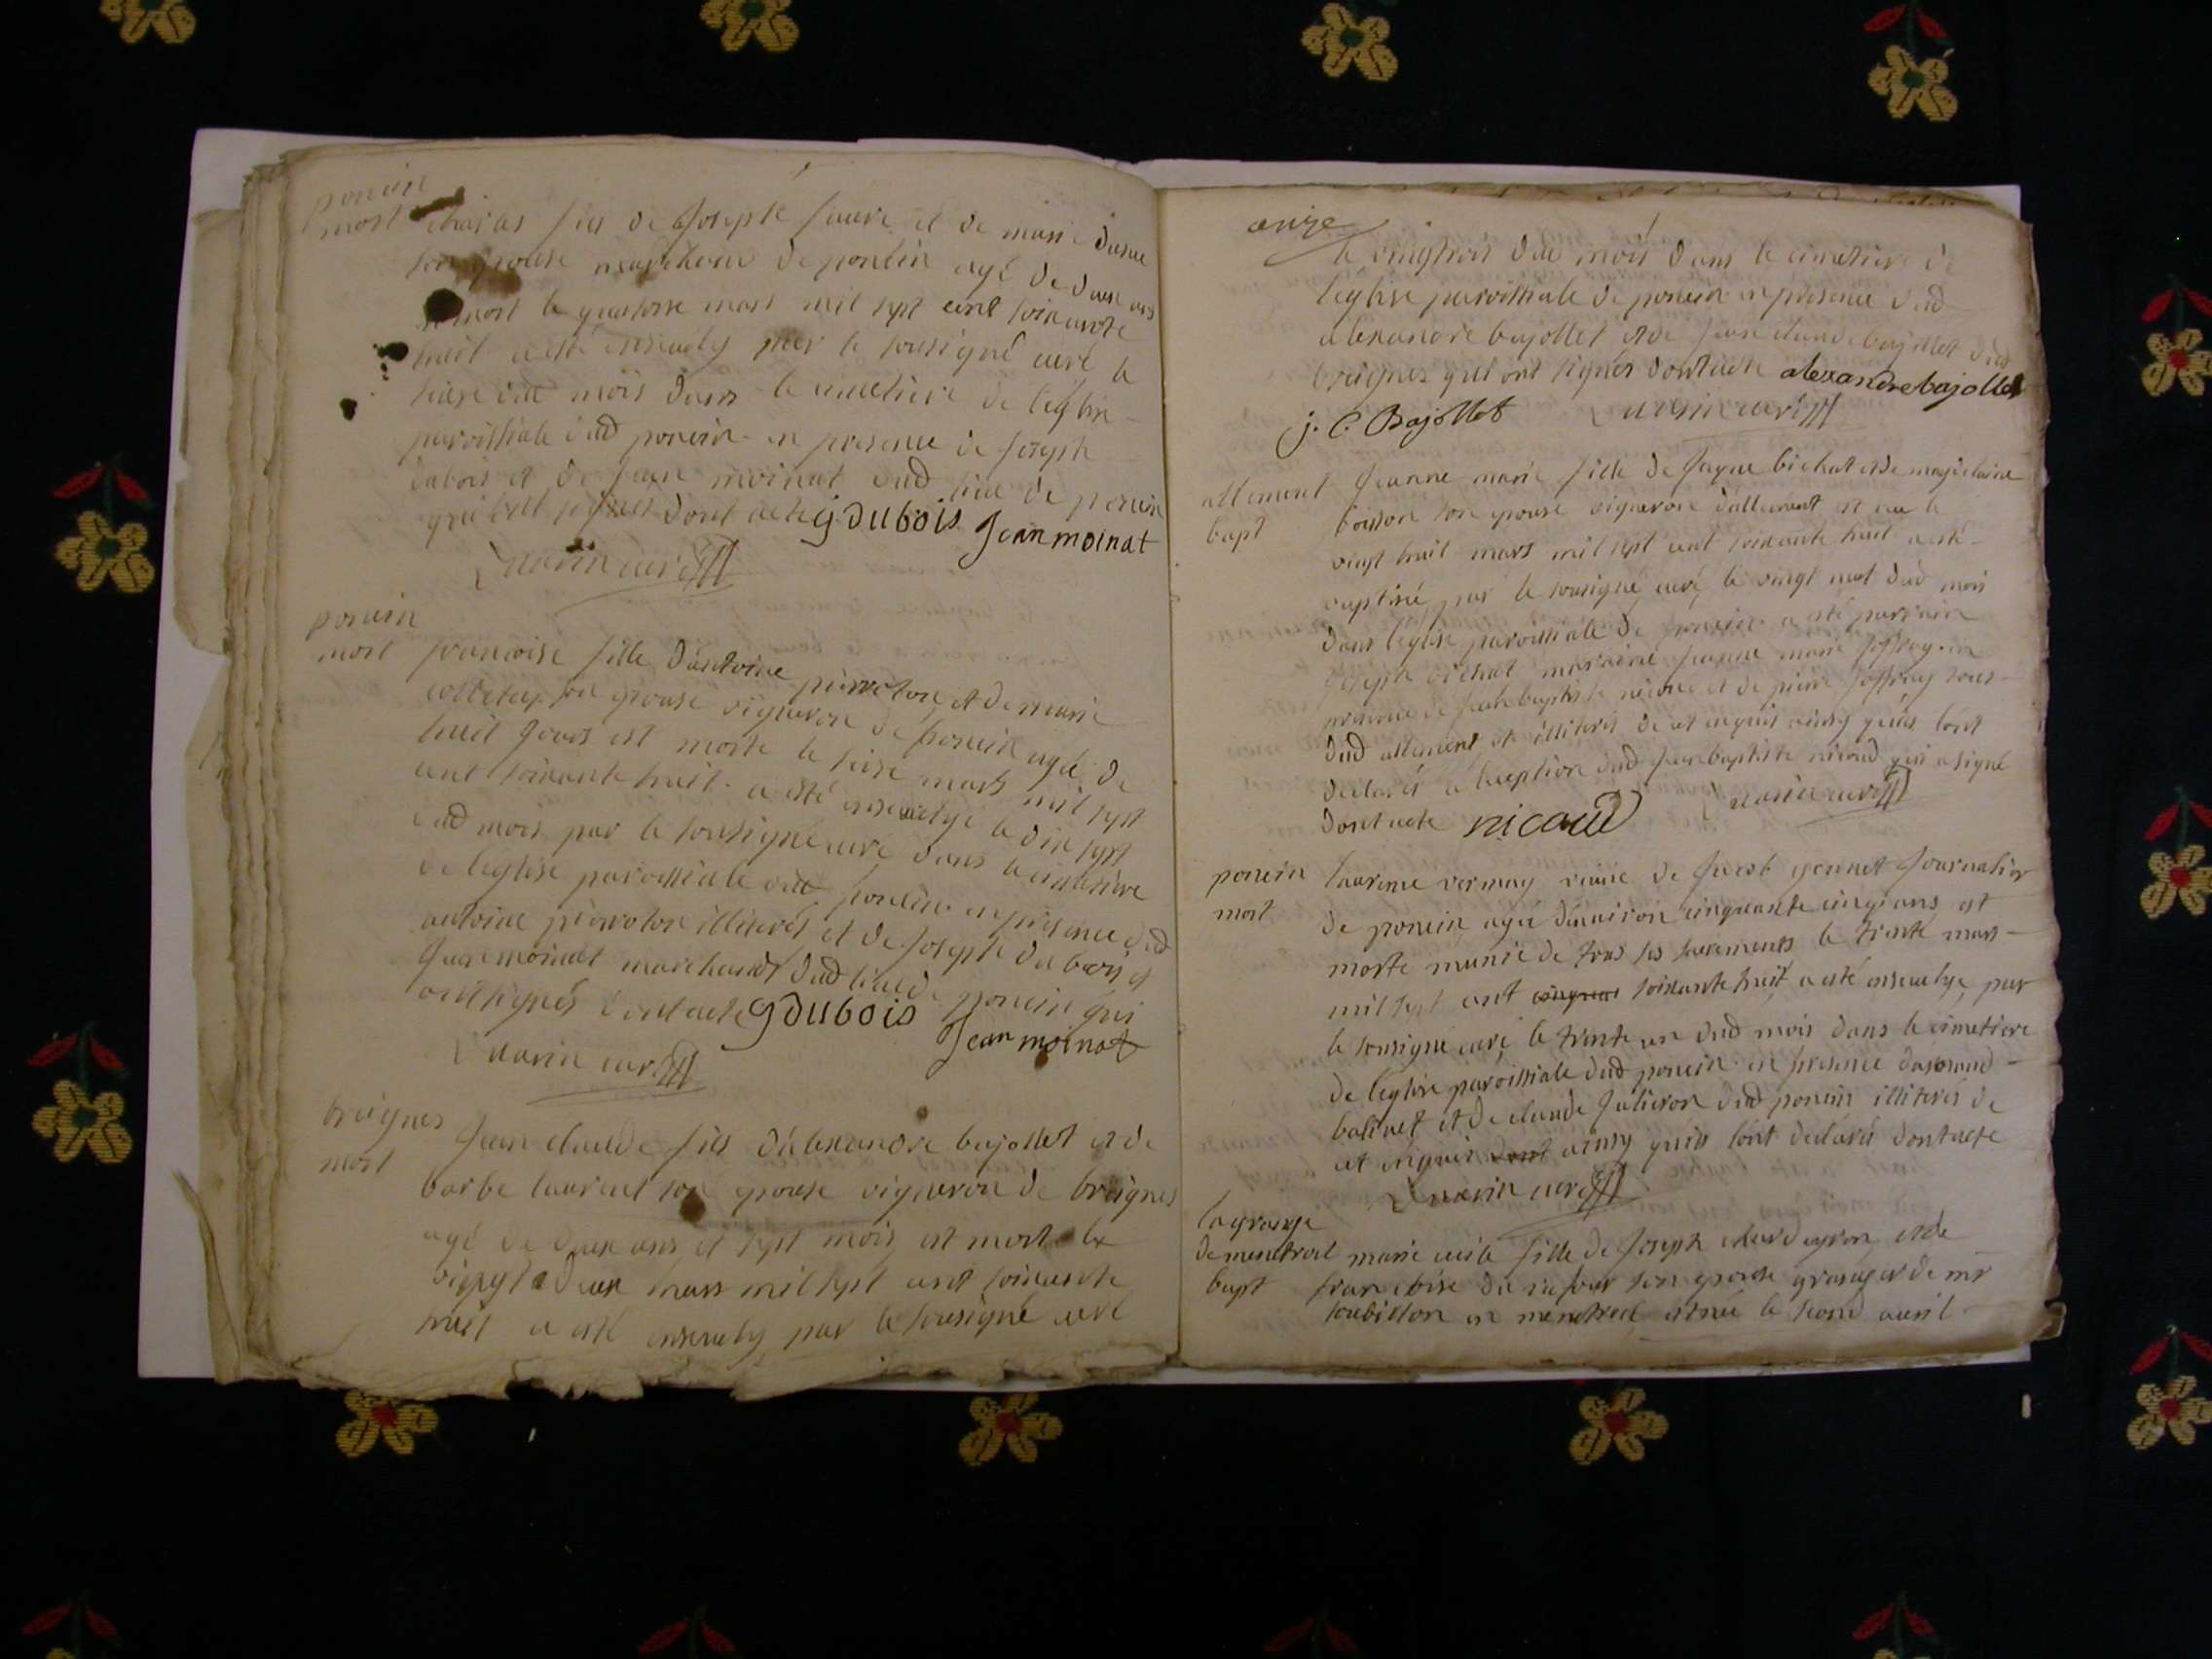 poncin
mort charles fils de Joseph faure et de marie
son epouse de poncin agé de deux ans
est mort le quatorse mars mil sept cent soixante
huit a esté ensevely par le sousigné curé le
seise dud mois dans le cimetiere de l'église
paroissiale dud poncin en presence de joseph
dubois et de jean moinat dud lieu de poncin
qui ont signés dont acte j dubois Jean moinat
curé
poncin
mort francoise fille d'antoine pirroton et de marie
sa epouse vigneron de poncin agée de
huit jours est morte le seise mars mil sept
cent soixante huit a esté ensevelye le dix sept
dud mois par le sousigné curé dans le cimetiere
de leglise paroissiale dud poncin en presence dud
antoine pirroton illiterés et de joseph dubois et
jean moinat marchands dud lieu de poncin qui
ont signés dont acte j dubois
Jean moinat
curé
breignes
mort jean claude fils d'alexandre bajollet et de
barbe laurent son epouse vigneron de breignes
agé de deux ans et sept mois est mort le
vingt deux mars mil sept cent soixante
huit a esté ensevely par le sousigné curé
onze
le vingtrois dud mois dans le cimetiere de
l'église paroissiale de poncin en presence dud
alexandre bajollet et de jean claude bajollet dud
breignes qui ont signés dont acte alexandre bajollet
j. C. Bajollet curé
allement jeanne marie fille de jaque bichat et de magdelaine
bapt boisson son epouse vigneron d'allement est née le
vingt huit mars mil sept cent soixante huit a esté
baptisé par le sousigné curé le vingt neuf dud mois
dans l'église paroissiale de poncin a esté parrain
joseph bichat marraine jeanne marie joffray en
presence de jean baptiste nicoud et de pierre joffray tous
dud allement et illiterés de ce enquis ainsy qu'ils l'ont
declarés a l'exeption dud jean baptiste nicoud qui a signé
dont acte nicoud curé
poncin laurence vermay veuve de jacob gonnet journalier
mort de poncin agée d'environ cinquante cinq ans est
morte munie de tous les sacrements le trente mars
mil sept cent soixante huit a esté ensevelye par
le sousigné curé le trente un dud mois dans le cimetiere
de l'église paroissiale dud poncin en presence
et de claude julieron dud poncin illiterés de
ce enquis ainsy qu'ils l'ont declarés dont acte
curé
la grange
de menetruel marie fille de joseph et de
bapt francoise son epouse granger de mr
en menetruel est née le avril